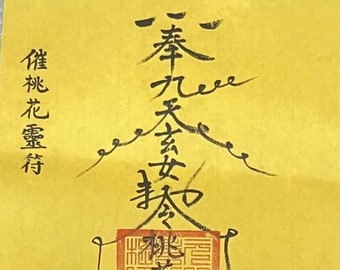 奉九天玄女勅令桃
催桃花靈符